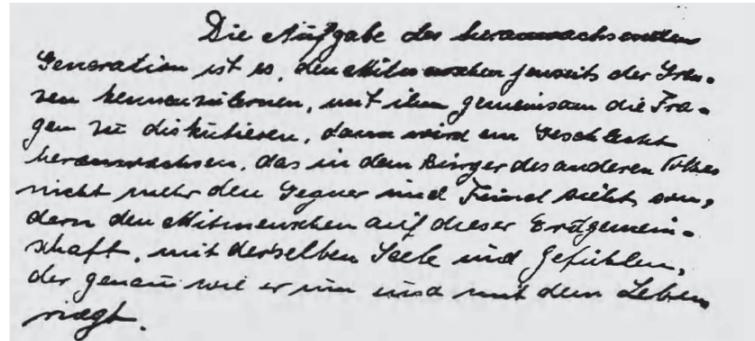 Die Aufgabe der heranwachsenden
Generation ist es, den Mitmenschen jenseits der Gren-
zen kennenzulernen, mit ihm gemeinsam die Fra-
gen zu diskutieren, dann wird ein Geschlecht
heranwachsen, das in dem Bürger des anderen Volkes
nicht mehr den Gegner und Feind sieht, son-
dern den Mitmenschen auf dieser Erdgemein-
schaft, mit derselben Seele und Gefühlen,
der genau wie er um und mit dem Leben
ringt.